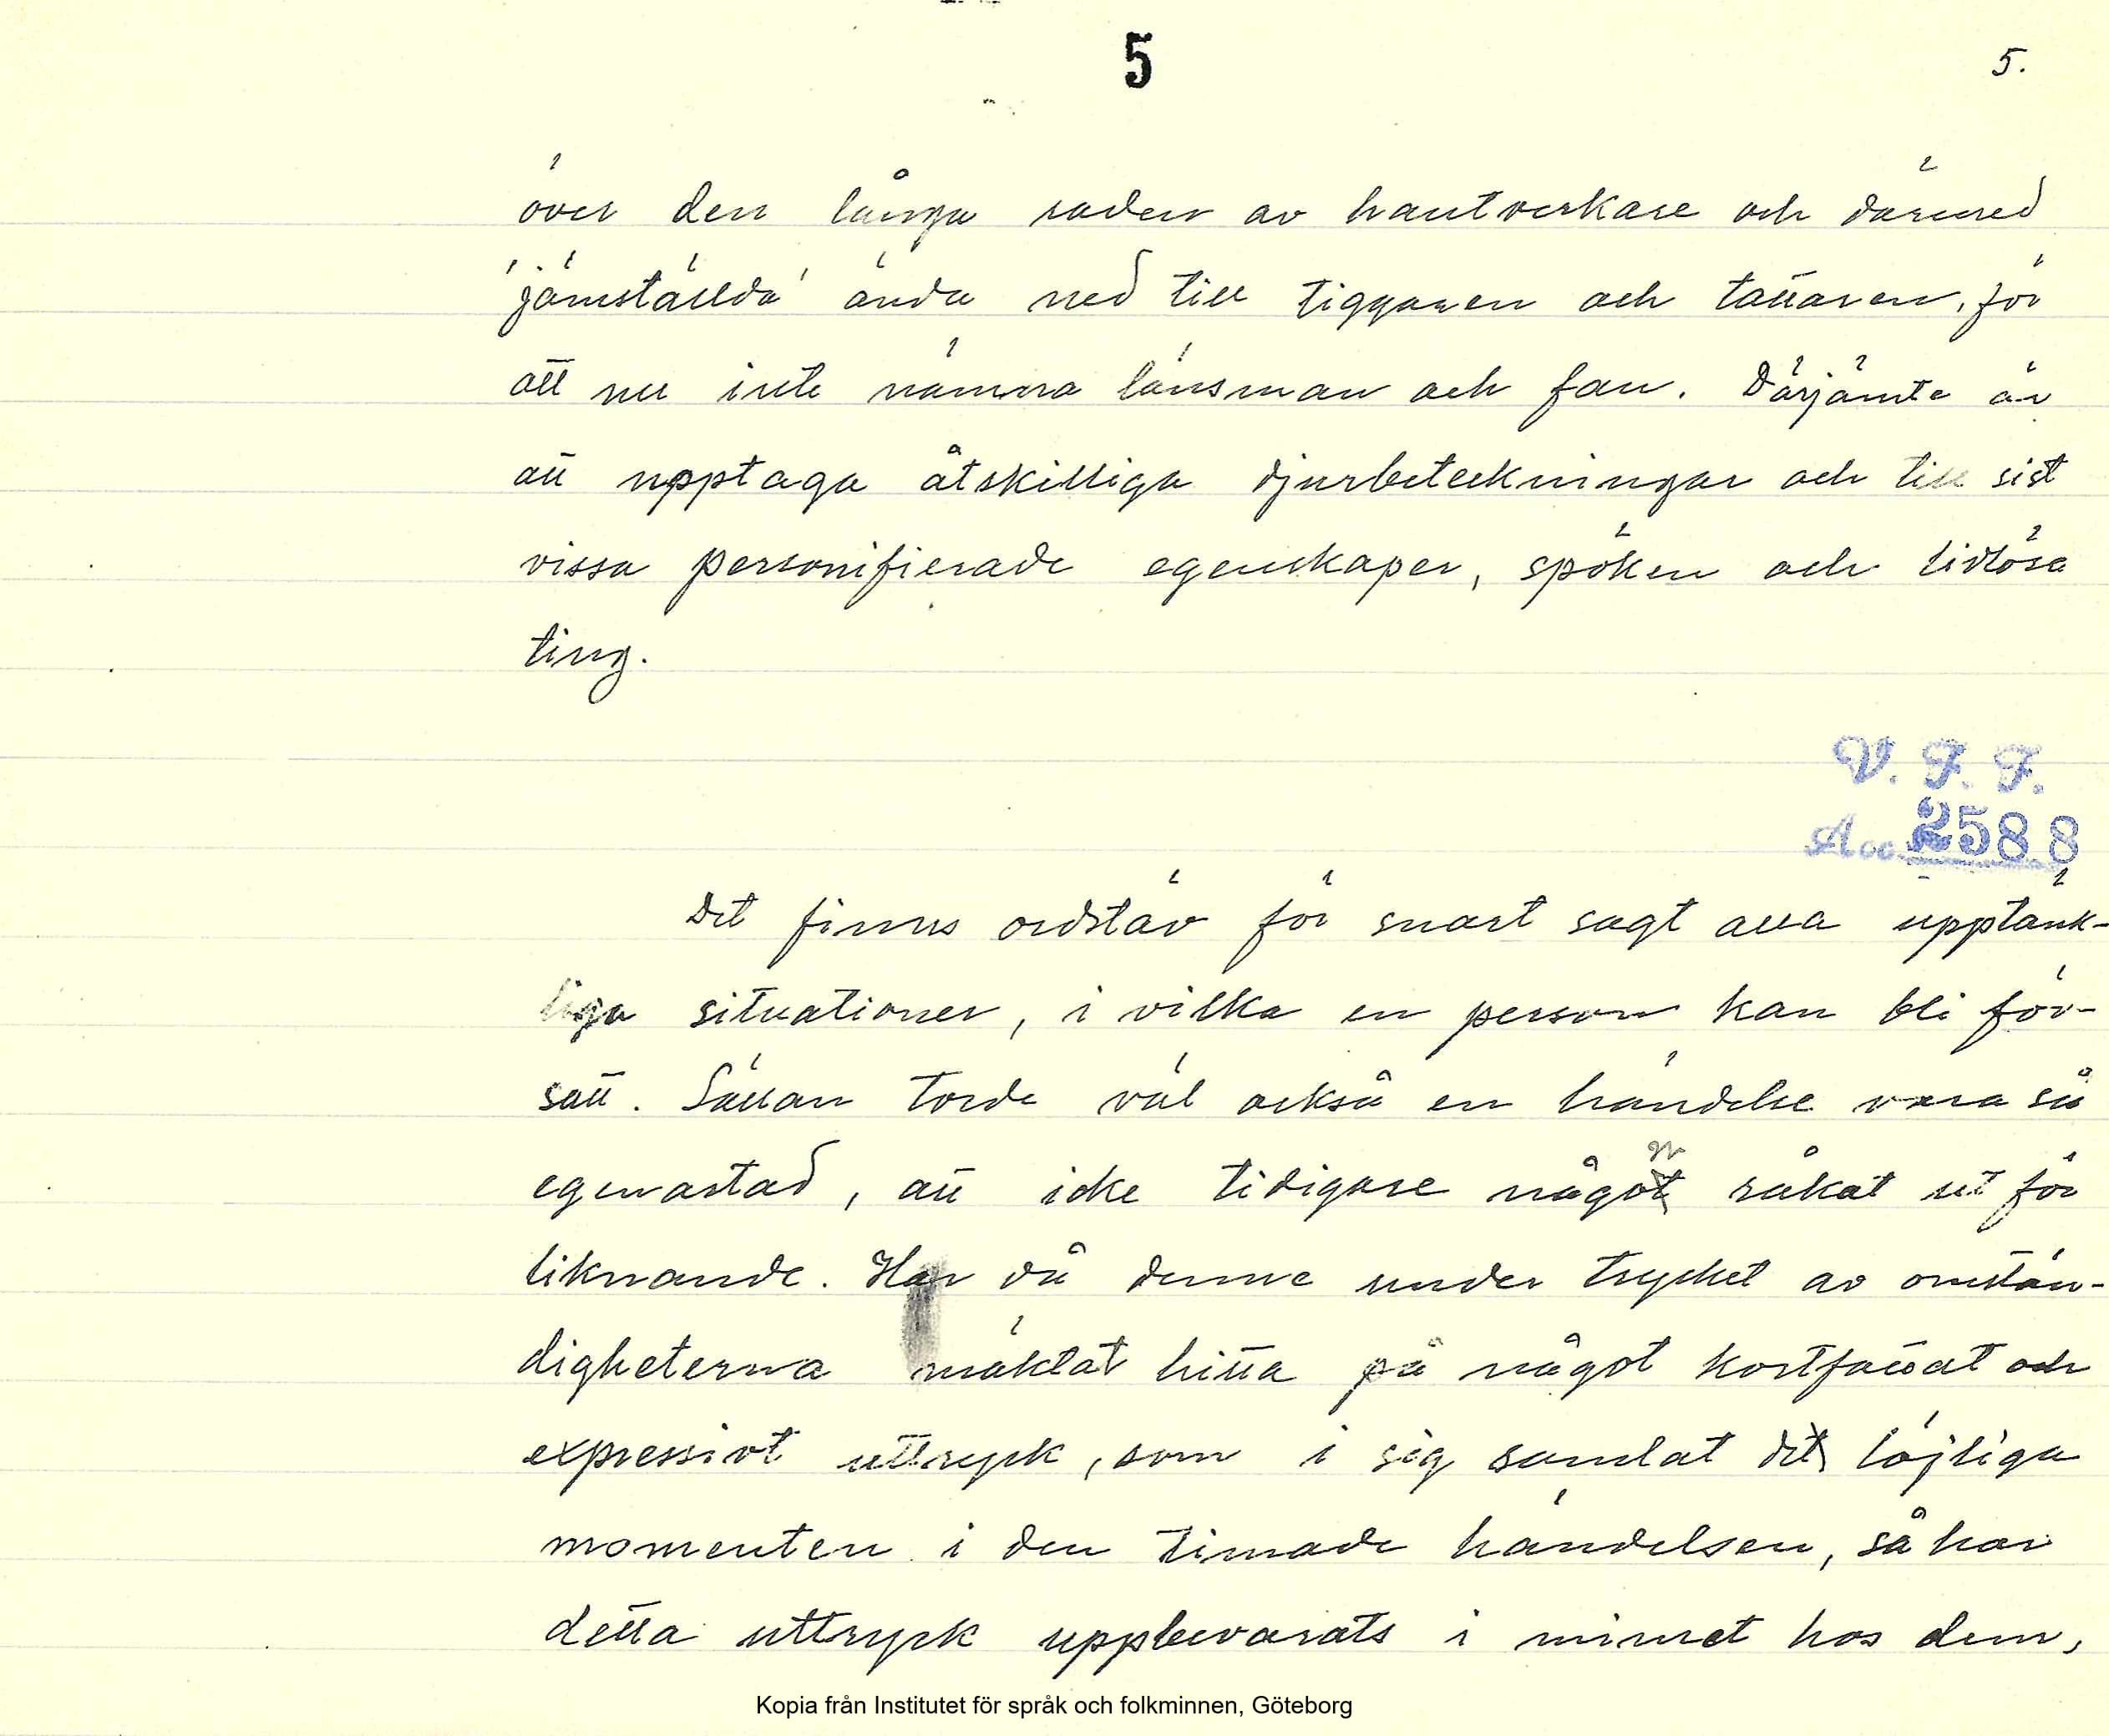 5
5.
över den långa raden av hantverkare och därmed
'jämställda' ända ned till tiggaren och tattaren, för
att nu inte nämna länsman och fan. Därjämte är
att upptaga åtskilliga djurbeteckningar och till sist
vissa personifierade egenskaper, spöken och livlösa
ting.
V. F. F.
Acc. 2588
Det finns ordstäv för snart sagt alla upptänk-
liga situationer, i vilka en person kan bli för-
satt. Sällan torde väl också en händelse vara så
egenartad, att icke tidigare någon råkat ut för
liknande. Har då denne under trycket av omstän-
digheterna mäktat hitta på något kortfattat och
expressivt uttryck, som i sig samlat de löjliga
momenten i den timade händelsen, så har
detta uttryck uppbevarats i minnet hos dem,
Kopia från Institutet för språk och folkminnen, Göteborg